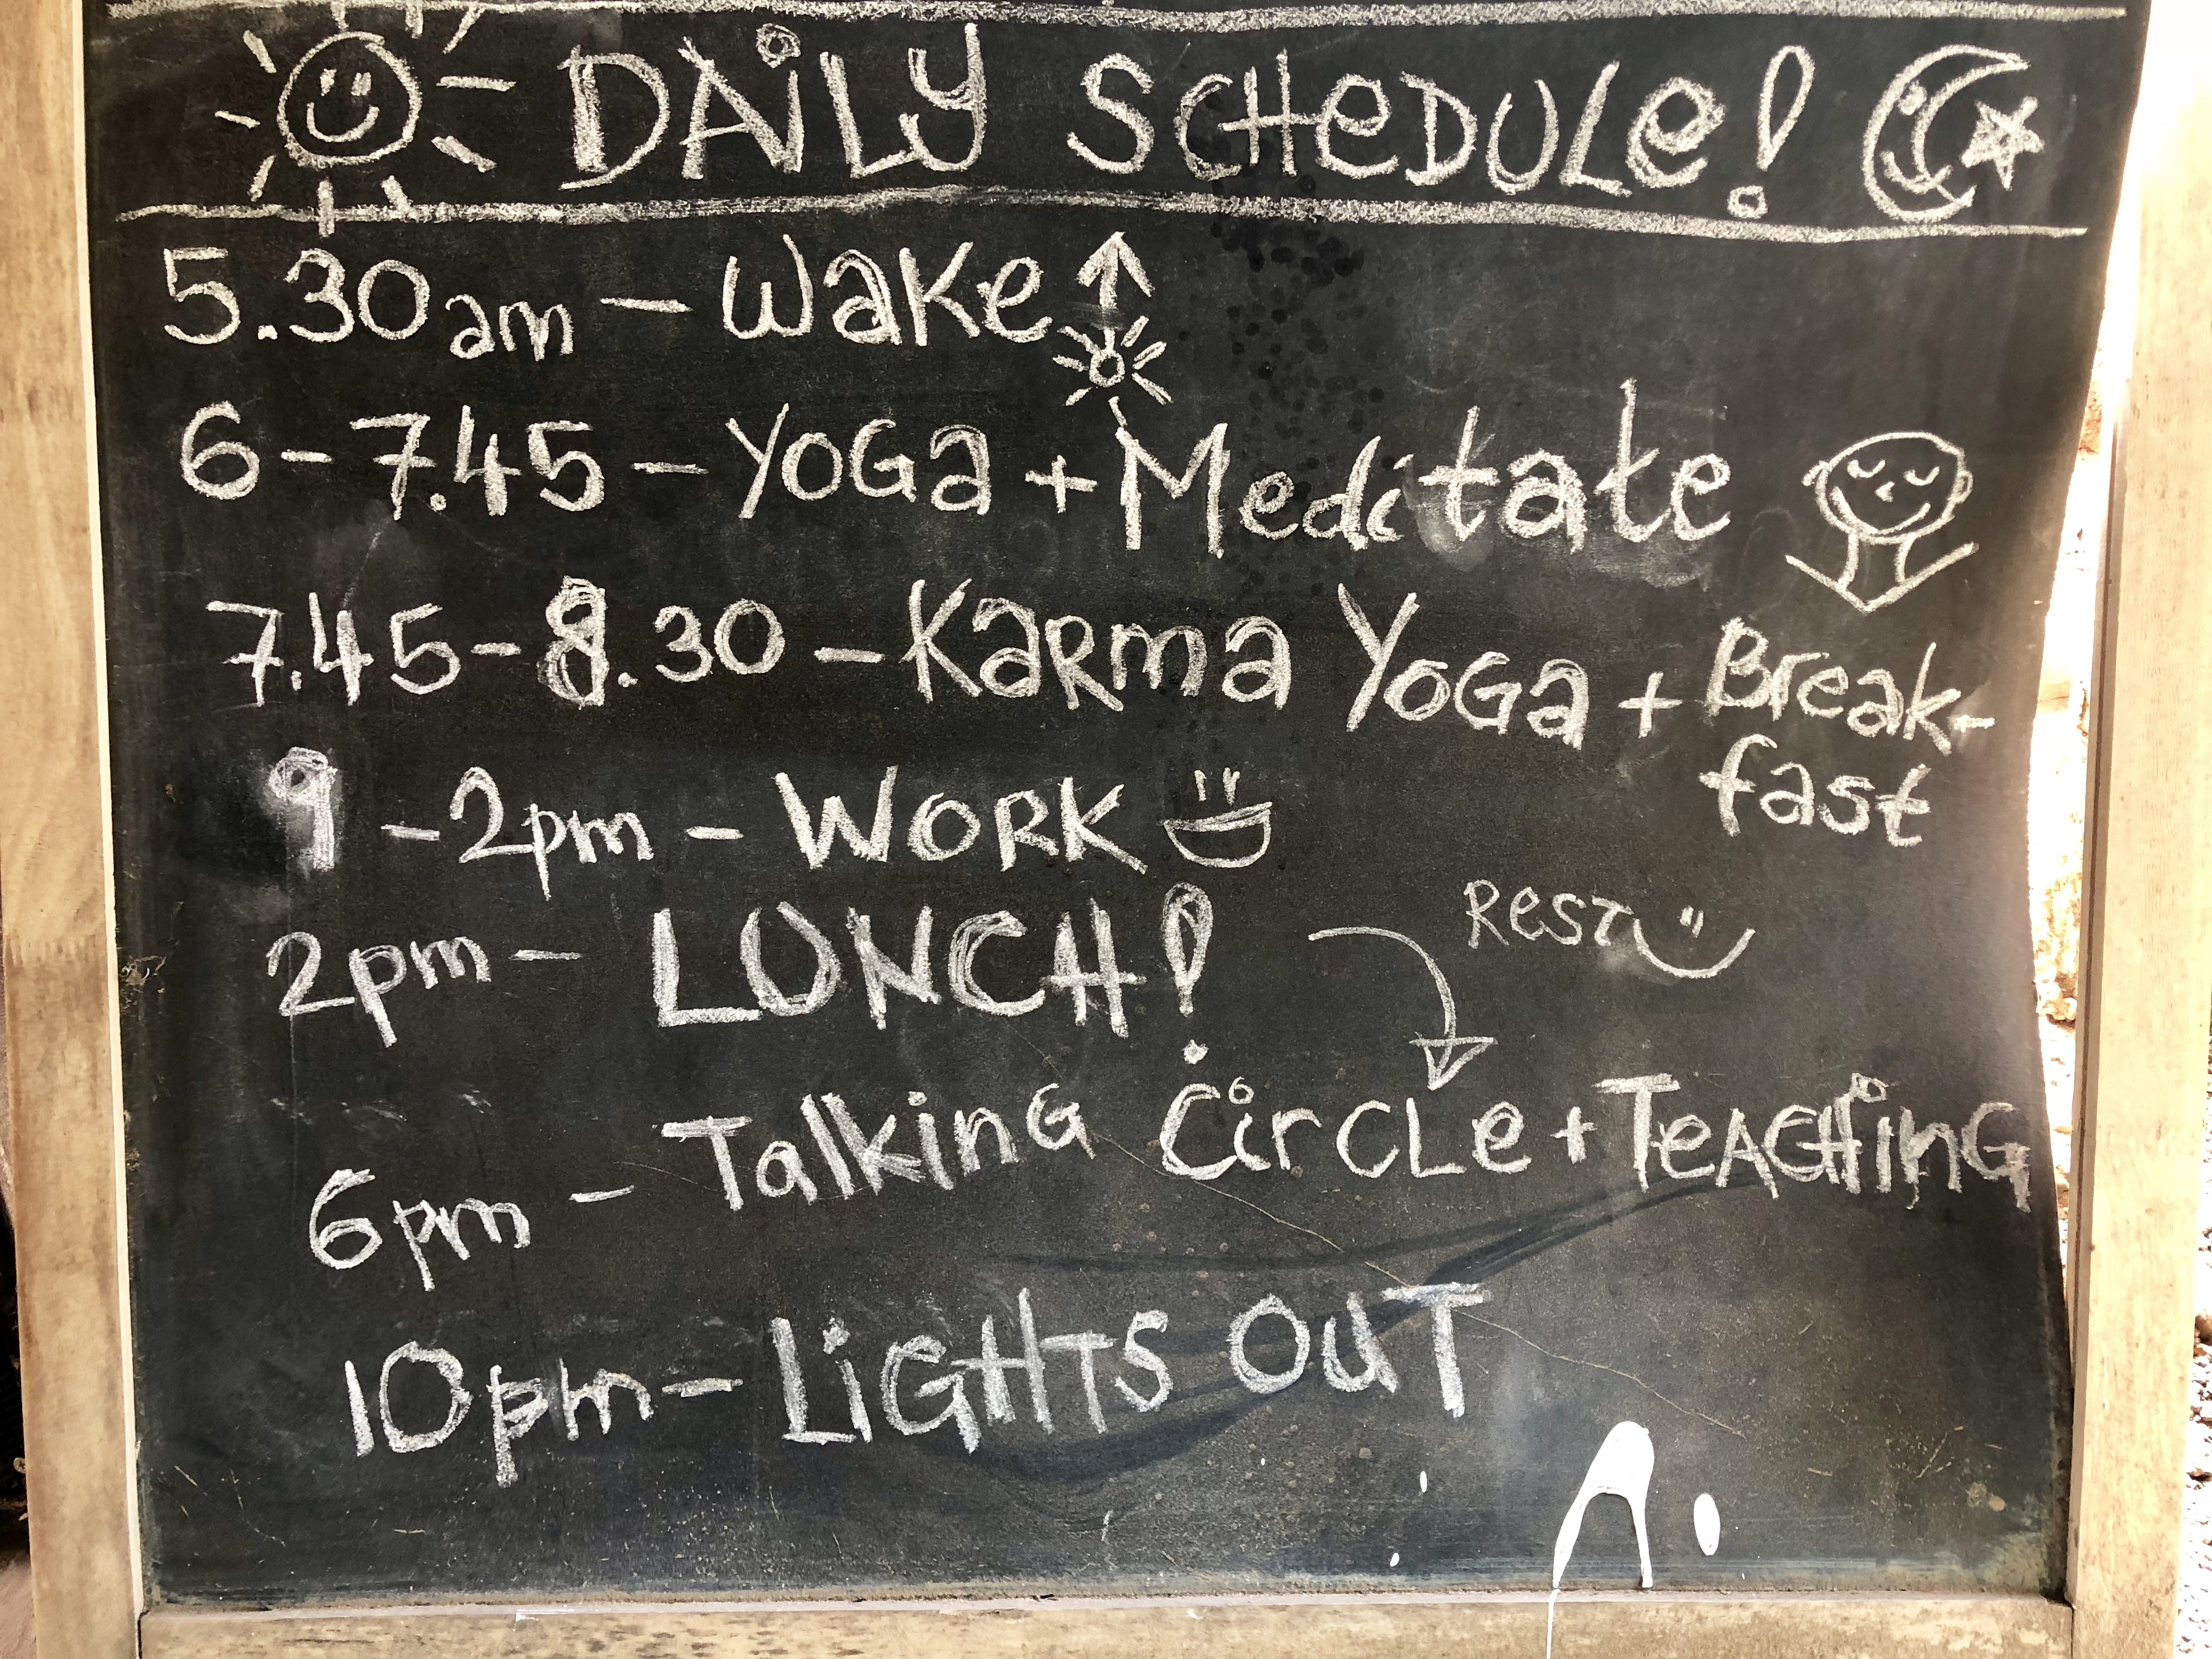 DAiLY SCHeDULe!
5.30am - Wake
6-7.45 - YOGa + Meditate
7.45-8.30 - KaRma YoGa + Break-
fast
9-2pm - WORK
2pm - LUNCH!
ResT
6pm - TalkinG CirCLe + TeACHinG
10pm - LiGHTs OuT